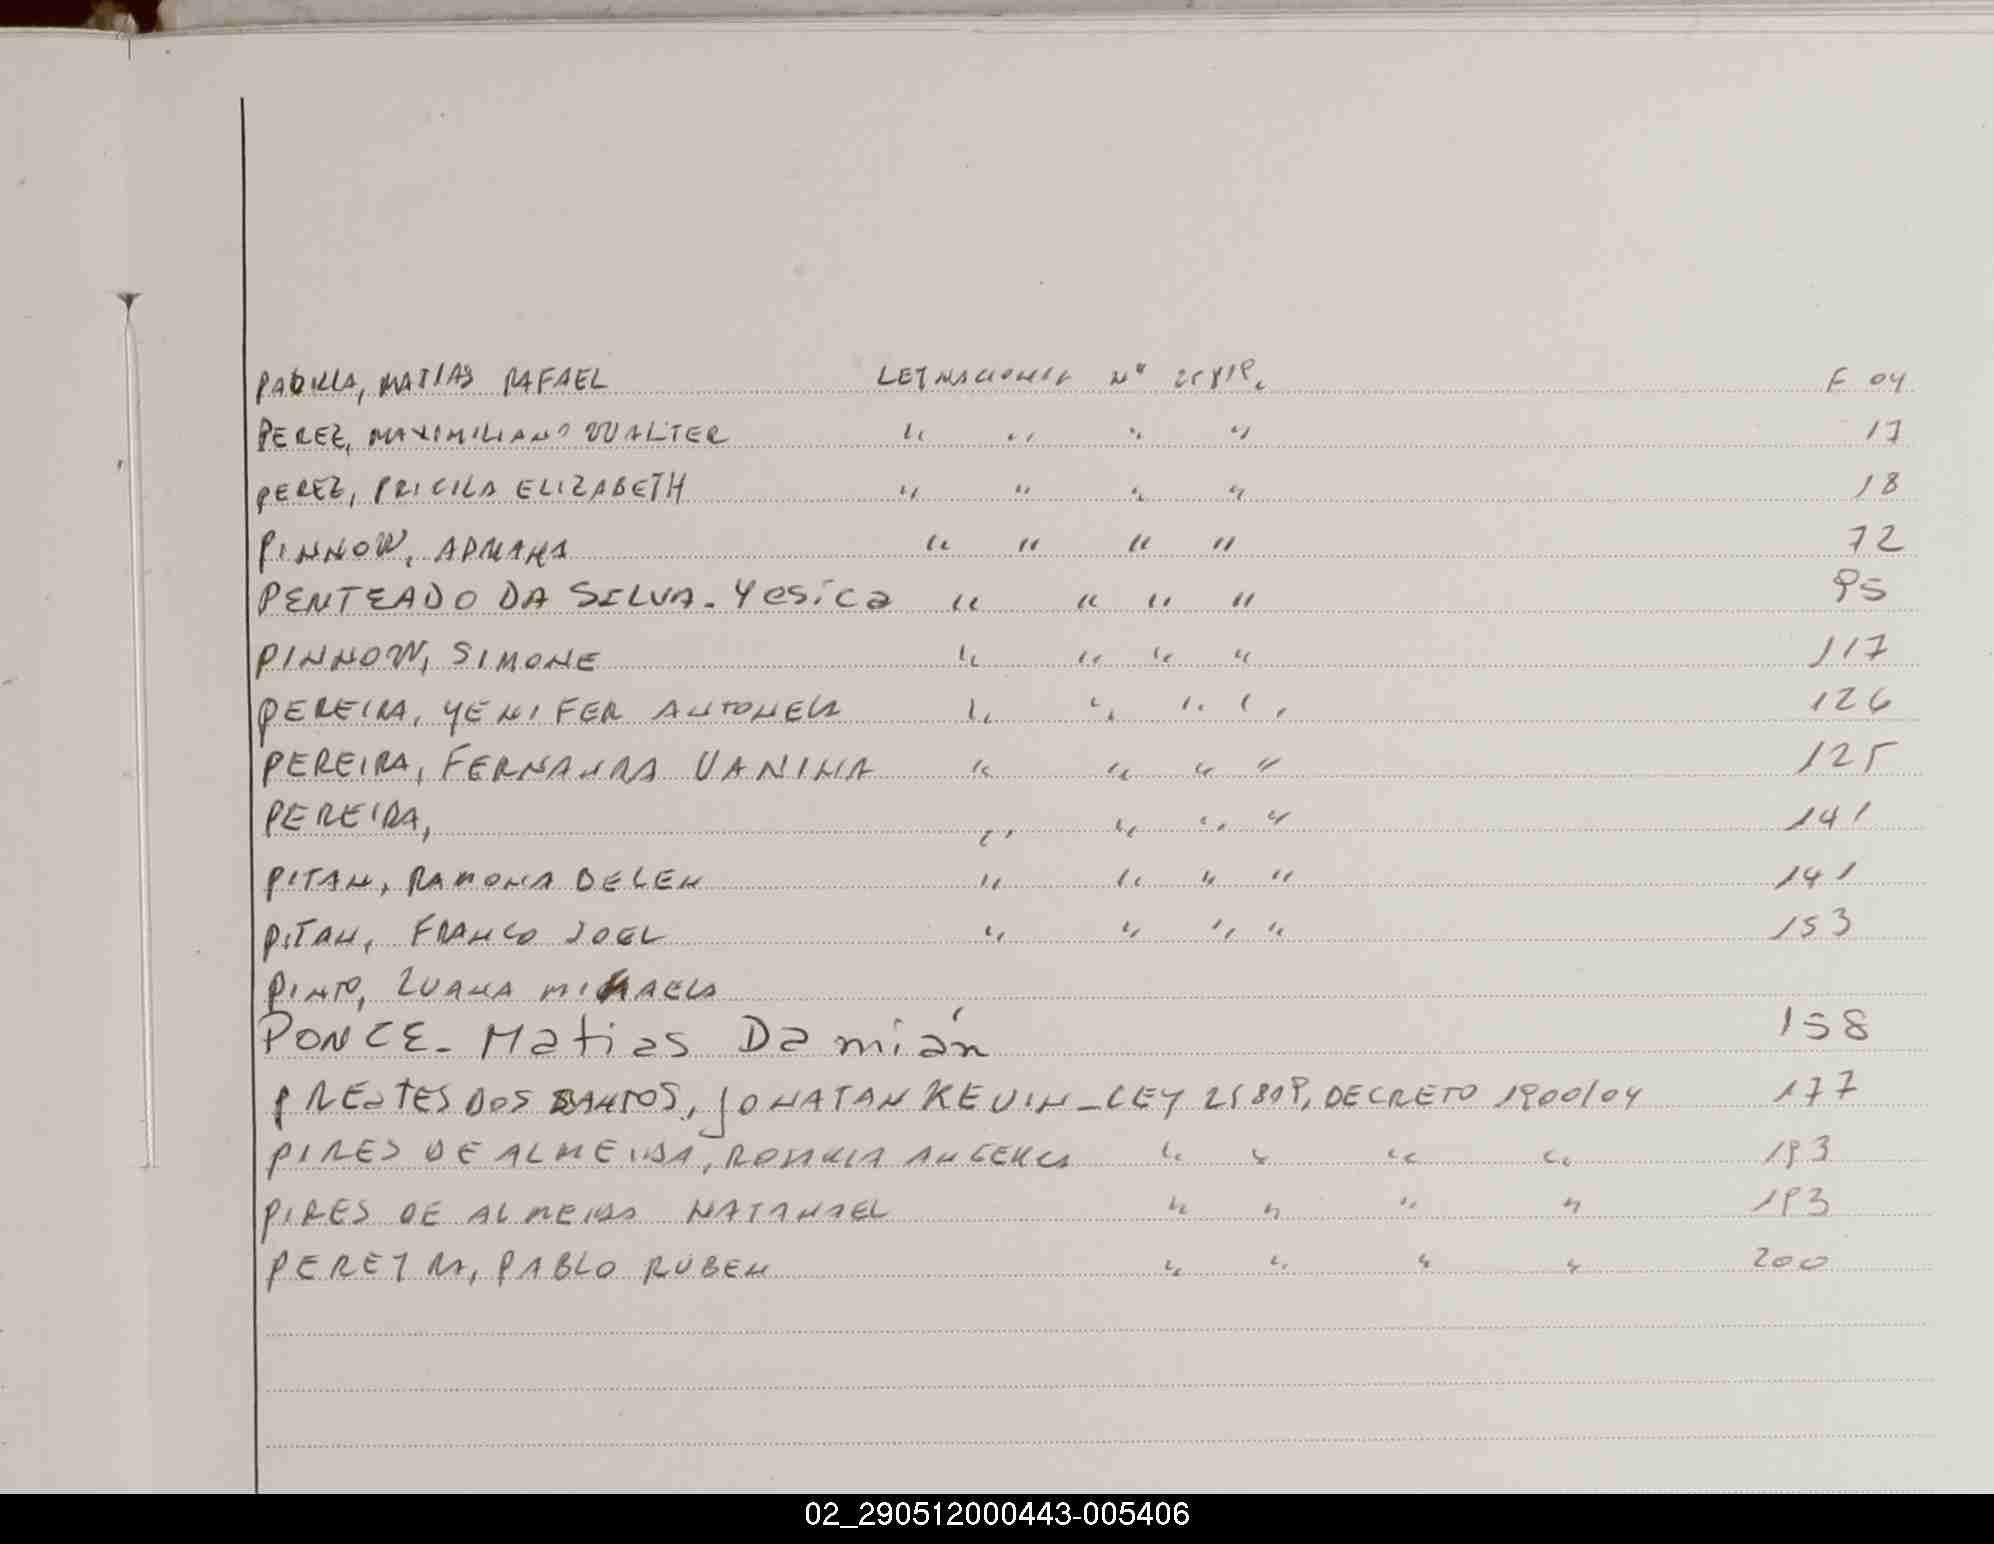 PADILLA, MATIAS RAFAEL LEY NACIONAL N° 25819, F 04
PEREZ, MAXIMILIANO WALTER " " " " 17
PEREZ, PRICILA ELIZABETH " " " " 18
PINNOW, ADRIANA " " " " 72
PENTEADO DA SILVA. Yesica " " " " 95
PINNOW, SIMONE " " " " 117
PEREIRA, YENIFER ANTONELA " " " " 126
PEREIRA, FERNANDA VANINA " " " " 125
PEREIRA, " " " " 141
PITAN, RAMONA BELEN " " " " 141
PITAN, FRANCO JOEL " " " " 153
PINTO, LUANA MICAELA
PONCE - Matias Damián 158
PRESTES DOS SANTOS, JONATAN KEVIN - LEY 25819, DECRETO 1900/04 177
PIRES DE ALMEIDA, ROSANGELA " " " " 193
PIRES DE ALMEIDA NATANAEL " " " " 193
PEREYRA, PABLO RUBEN " " " " 200
02_290512000443-005406